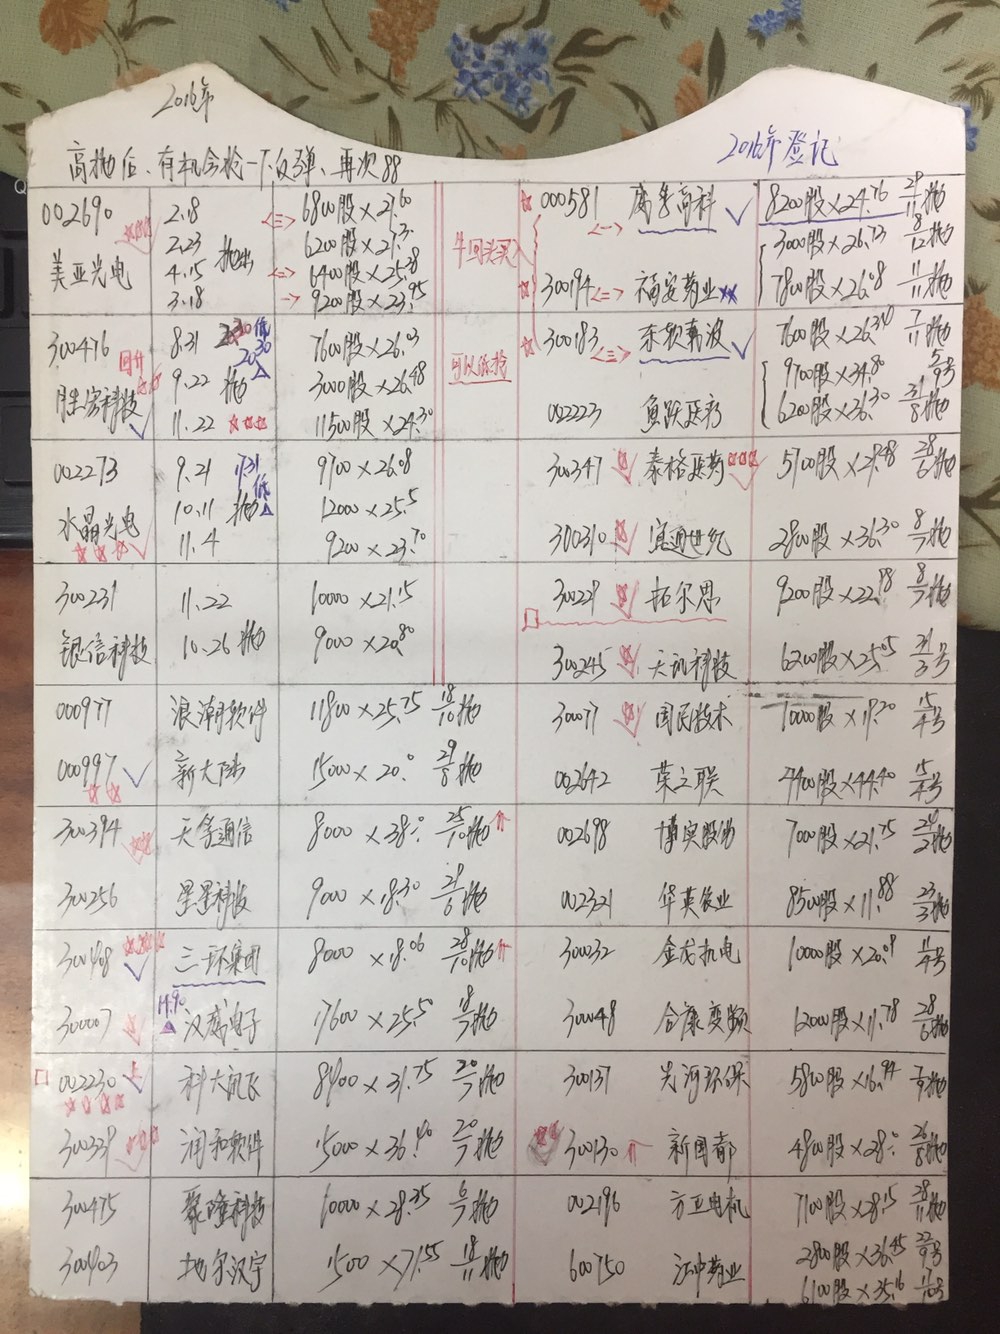 2016年
高抛后、有机会抢一下反弹、再次88
2016年登记
002690
美亚光电
2.18
2.23 抛出
4.15
3.18
6800股×27.60
6200股×27.3
6400股×25.28
9200股×23.95
牛回头买入
可以低抢
300476 回升
胜宏科技
8.31
9.22 抛
11.22
低
7600股×26.03
3000股×26.48
11500股×24.30
002273
水晶光电
9.21
10.11 抛
11.4
低
9700×26.08
12000×25.5
9200×23.70
300231
银信科技
11.22
10.26 抛
10000×21.15
9000×20.80
000977 浪潮软件 11800×25.75 18/10抛
000997 新大陆 15000×20.0 29/8抛
300394 天孚通信 8000×38.0 25/10抛
300256 星星科技 9000×18.30
300408 三环集团 8000×18.06 28/10抛
14.90
300007 汉威电子 17600×25.50 18/7抛
002230 科大讯飞 8400×31.75 20/7抛
300339 润和软件 15000×36.40 20/7抛
300475 聚隆科技 10000×28.35 6/7抛
300403 地尔汉宇 1500×71.55 18/11抛
000581 威孚高科 8200股×24.76 29/11抛
3000股×26.73 8/12抛
30094 福安药业 7800股×26.08 11/11抛
300183 东软载波 7600股×26.30 7/11抛
9700股×34.80 5/9号
002223 鱼跃医疗 6200股×36.30 31/8抛
300347 泰格医药 5700股×29.48 28/6抛
300310 宜通世纪 2800股×36.30 8/7抛
300229 拓尔思 9200股×22.98 8/7抛
300245 天玑科技 6200股×25.05 31/3号
30077 国民技术 10000股×19.20 15/4号
002642 荣之联 4400股×44.40 15/4号
002698 博实股份 7000股×21.75 24/2抛
002321 华英农业 8500股×11.88 23/3抛
300032 金龙机电 10000股×20.09 11/4号
300048 合康变频 12000股×11.78 28/6抛
300137 先河环保 5800股×16.94
300130 新国都 4800股×28.0 26/8抛
002196 方正电机 7100股×28.15 28/11抛
600750 江中药业 2800股×36.45 22/9号
6100股×35.16 11/10号